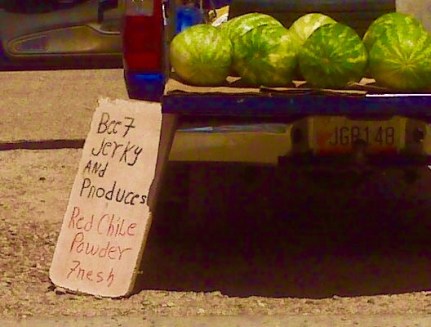 Bee7
Jerky
AND
Produces
Red Chile
Powder
7resh
JGB148